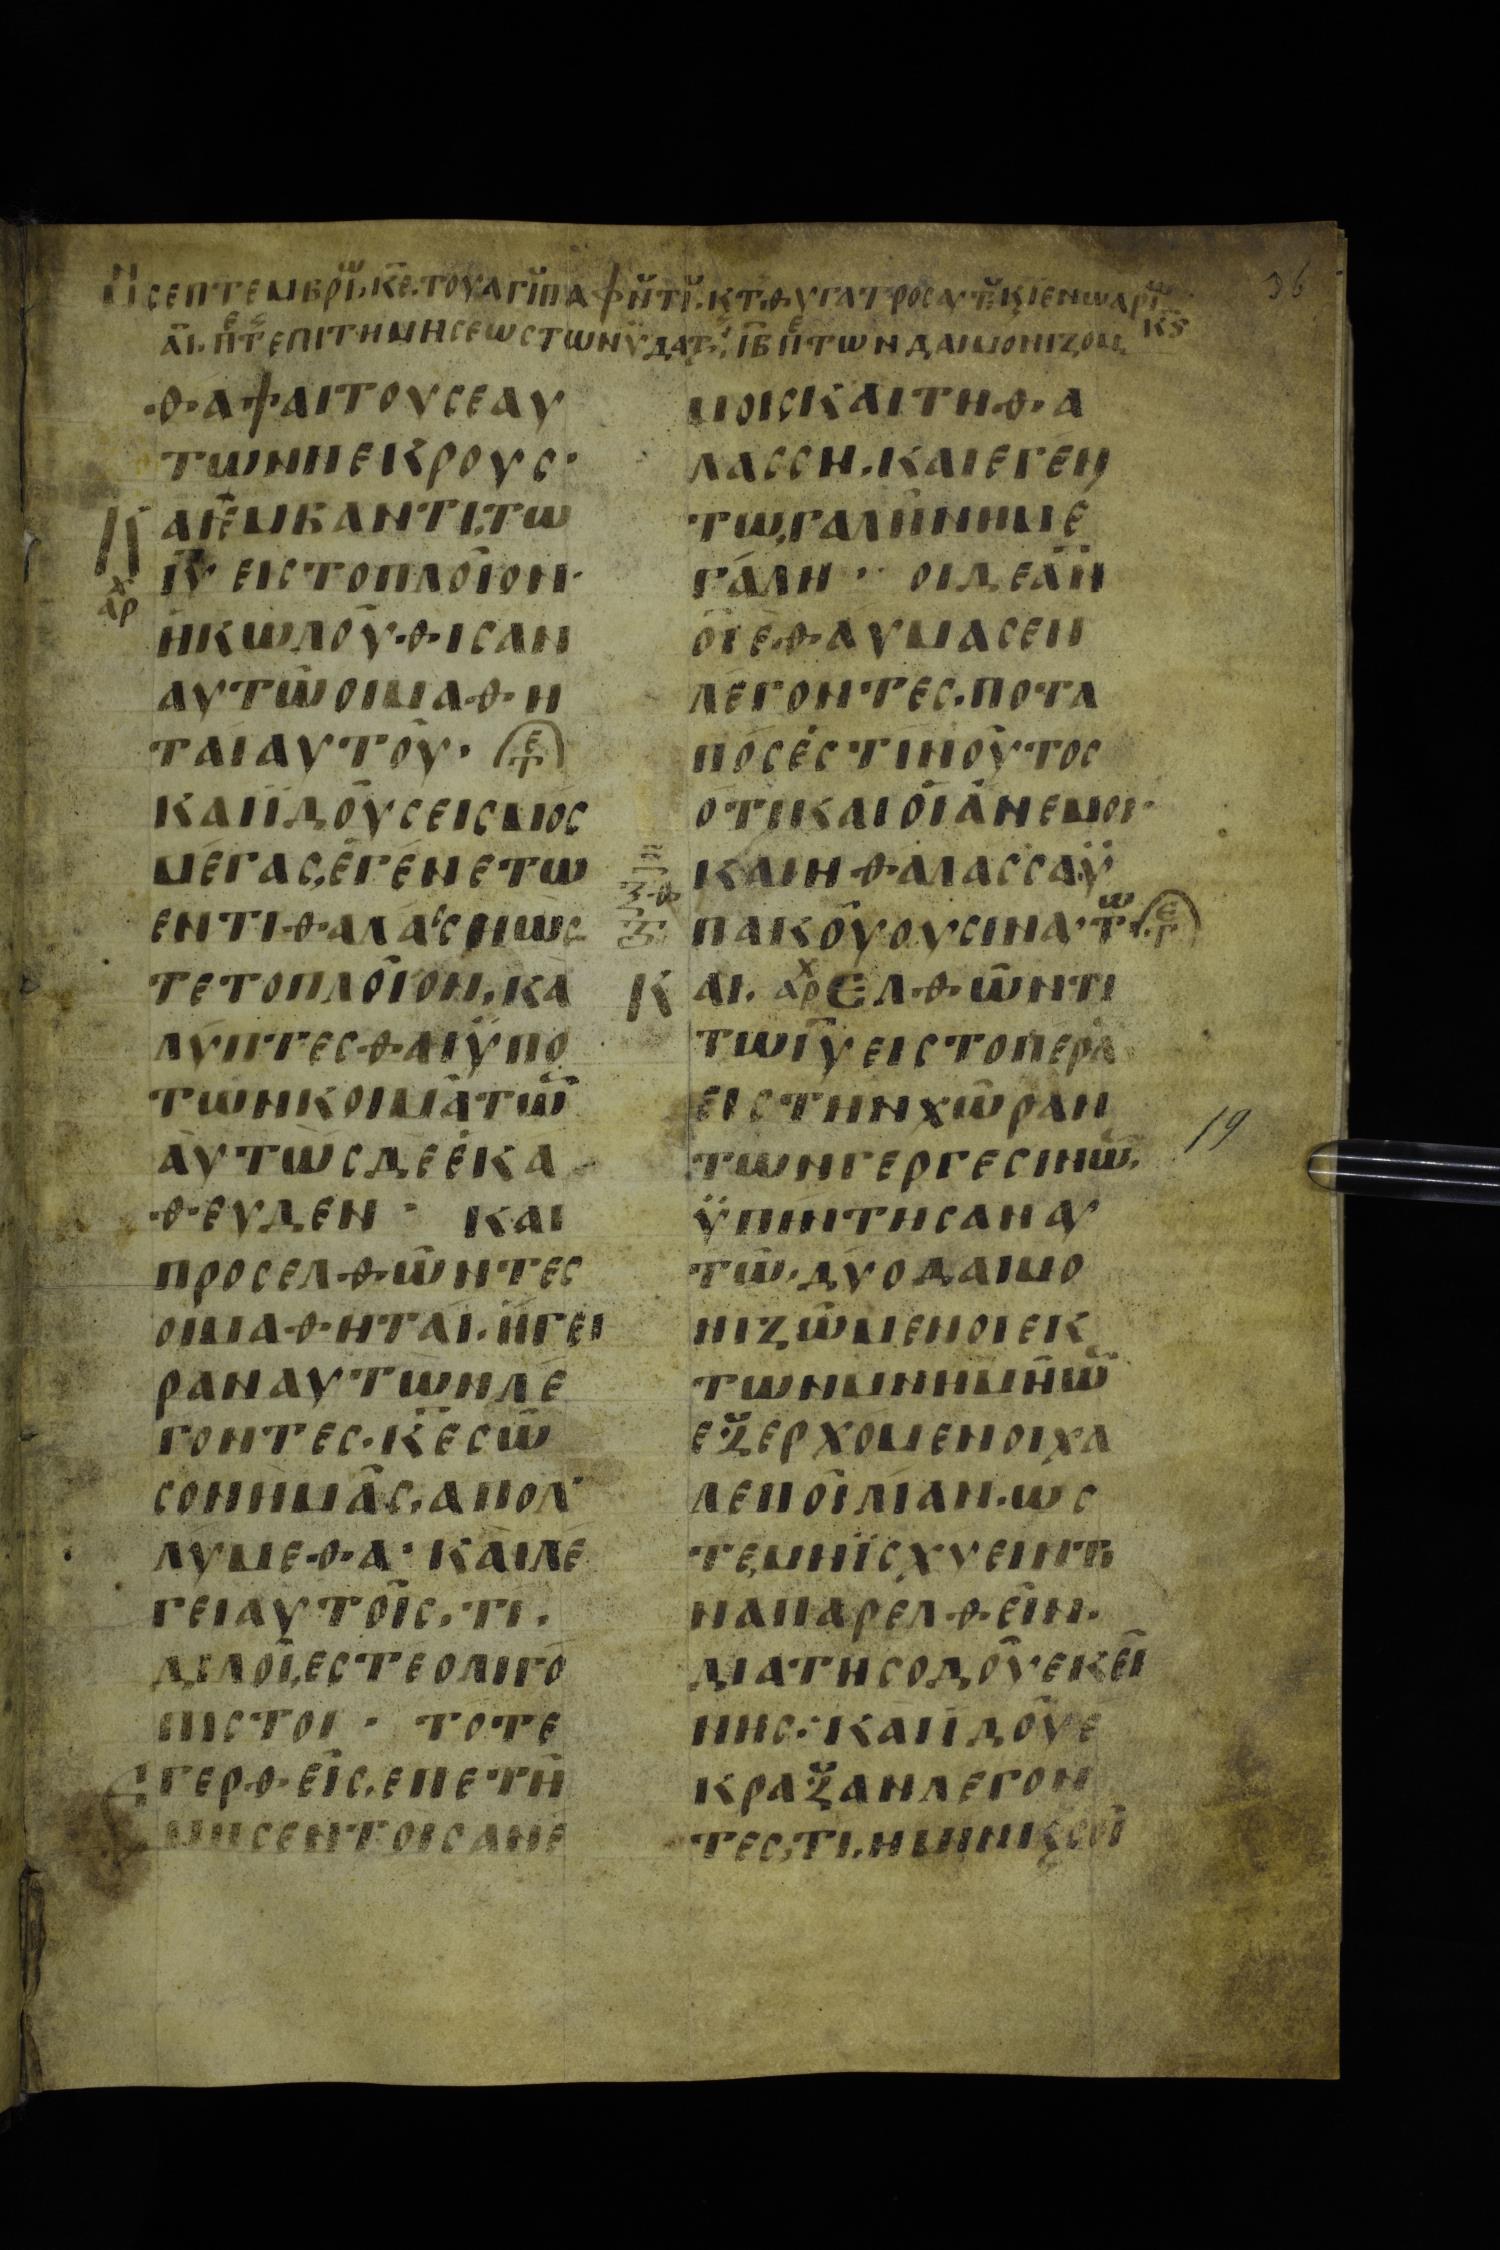 36
Μ σεπτεμβρϊ, κε. του αγι παφντι. κ τ θυγατρος αυτ κ ιενωαρι κς
αι. πτ επιτημησεως των ϋδατ, ιβ π των δαιμονιζομ,
θαψαι τους εαυ
των νεκρους·
Κ
αι εμβαντι, τω
χ
αρ
ιυ εις το πλοιον·
ηκωλουθισαν
αυτω οι μαθη
ται αυτου· ετ
και ϊδου σεισμος
μεγας, εγενετω
εν τι θαλασση ως
τε το πλοιον, κα
λυπτεσθαι ϋπο
των κοιματω
αυτως δε εκα
θευδεν· και
προσελθωντες
οι μαθηται. ηγει
ραν αυτων λε
γοντες. κε σω
σον ημας, απολ
λυμεθα· και λε
γει αυτοις, τι.
διλοι, εστε ολιγο
πιστοι· τοτε
Ε
γερθεις, επετη
μησεν τοις ανε
μοις και τη θα
λασση. και εγεν
τω, γαληνη με
γαλη· οι δε αν
οι εθαυμασεν
λεγοντες. ποτα
πος εστιν ουτος
οτι και οι ανεμοι·
και η θαλασσα ϋ
πακουουσιν α· τω ετ
Κ
αι. αρχ Ελθωντι
τω ιυ εις το περα
εις την χωραν
19
των γεργεσινω,
ϋπιντησαν αυ
τω, δυο δαιμο
νιζωμενοι εκ
των μνημηω
εξερχομενοι χα
λεποι λιαν. ως
τε, μη ϊσχυειν τι
να παρελθειν.
δια της οδου εκει
νης: και ϊδου ε
κραξαν λεγον
τες, τι, ημιν κ σοι